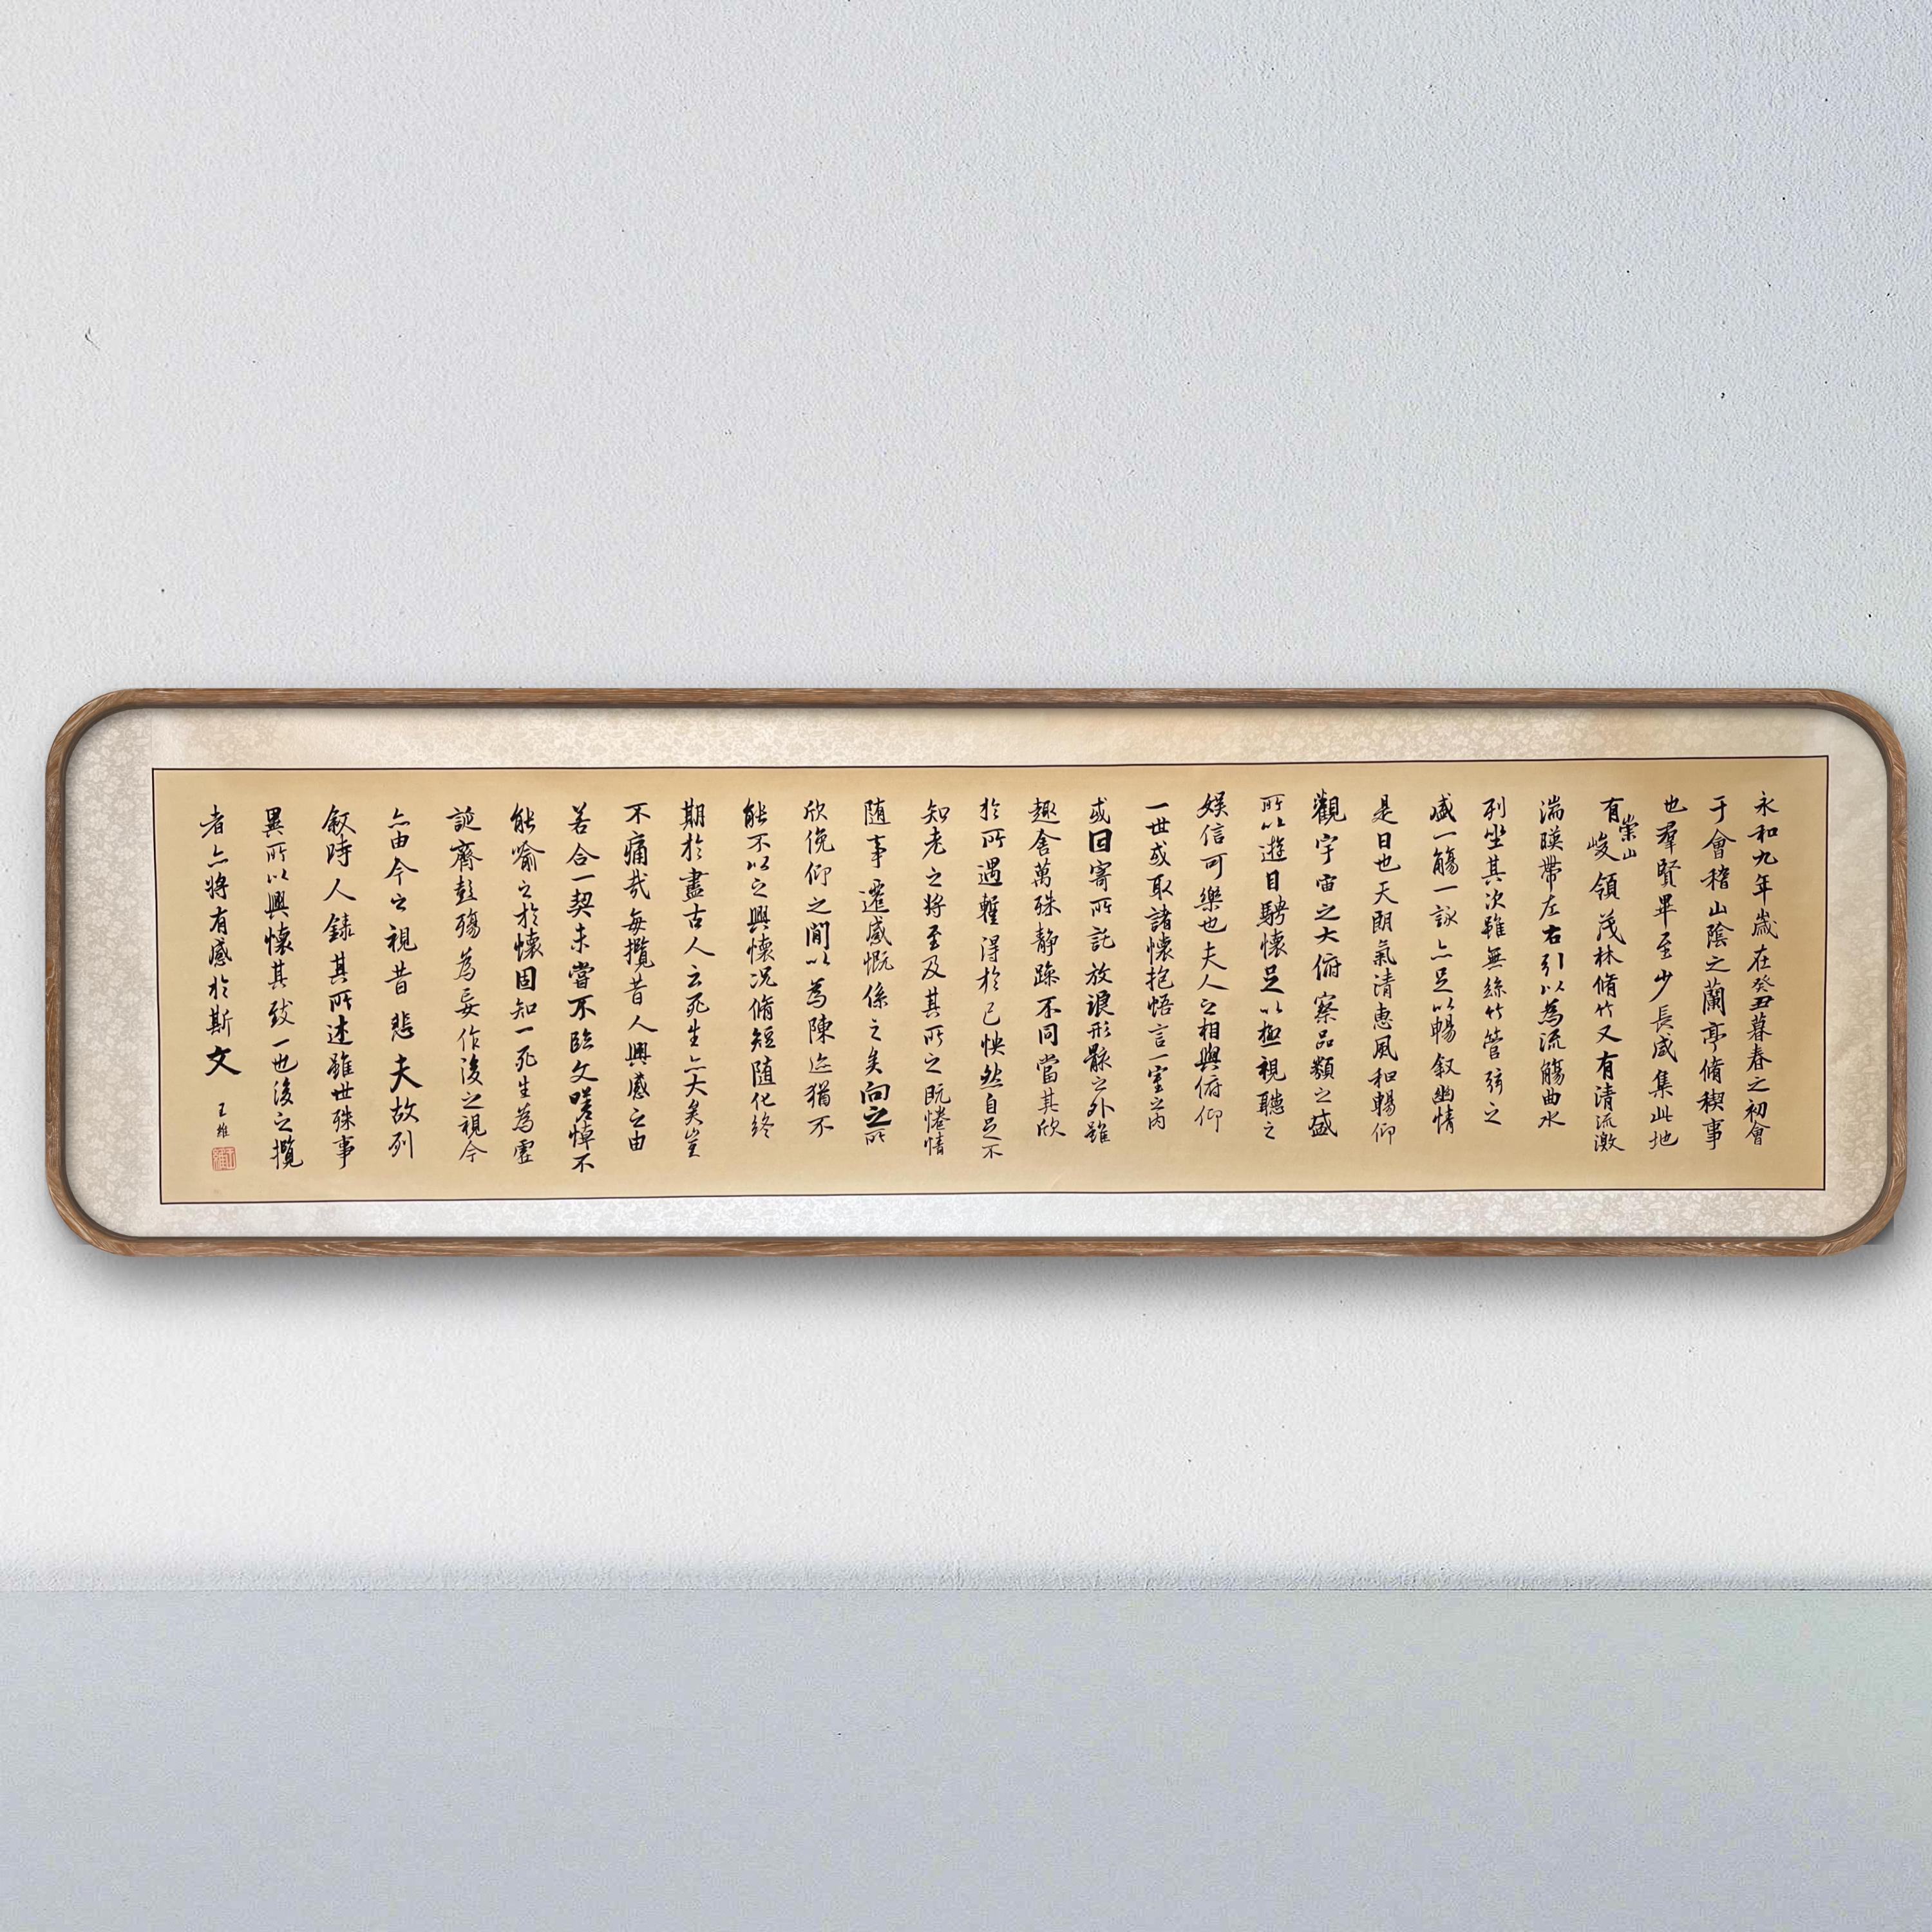 永和九年歲在癸丑暮春之初會
于會稽山陰之蘭亭脩稧事
也羣賢畢至少長咸集此地
有崇山峻領茂林脩竹又有清流激
湍暎帶左右引以為流觴曲水
列坐其次雖無絲竹管弦之
盛一觴一詠亦足以暢叙幽情
是日也天朗氣清惠風和暢仰
觀宇宙之大俯察品類之盛
所以遊目騁懷足以極視聽之
娛信可樂也夫人之相與俯仰
一世或取諸懷抱悟言一室之内
或因寄所託放浪形骸之外雖
趣舍萬殊静躁不同當其欣
於所遇暫得於己怏然自足不
知老之将至及其所之既惓情
随事遷感慨係之矣向之所
欣俛仰之閒以為陳迹猶不
能不以之興懷况脩短随化終
期於盡古人云死生亦大矣豈
不痛哉每攬昔人興感之由
若合一契未嘗不臨文嗟悼不
能喻之於懷固知一死生為虛
誕齊彭殤為妄作後之視今
亦由今之視昔悲夫故列
叙時人錄其所述雖世殊事
異所以興懷其致一也後之攬
者亦将有感於斯文
王維